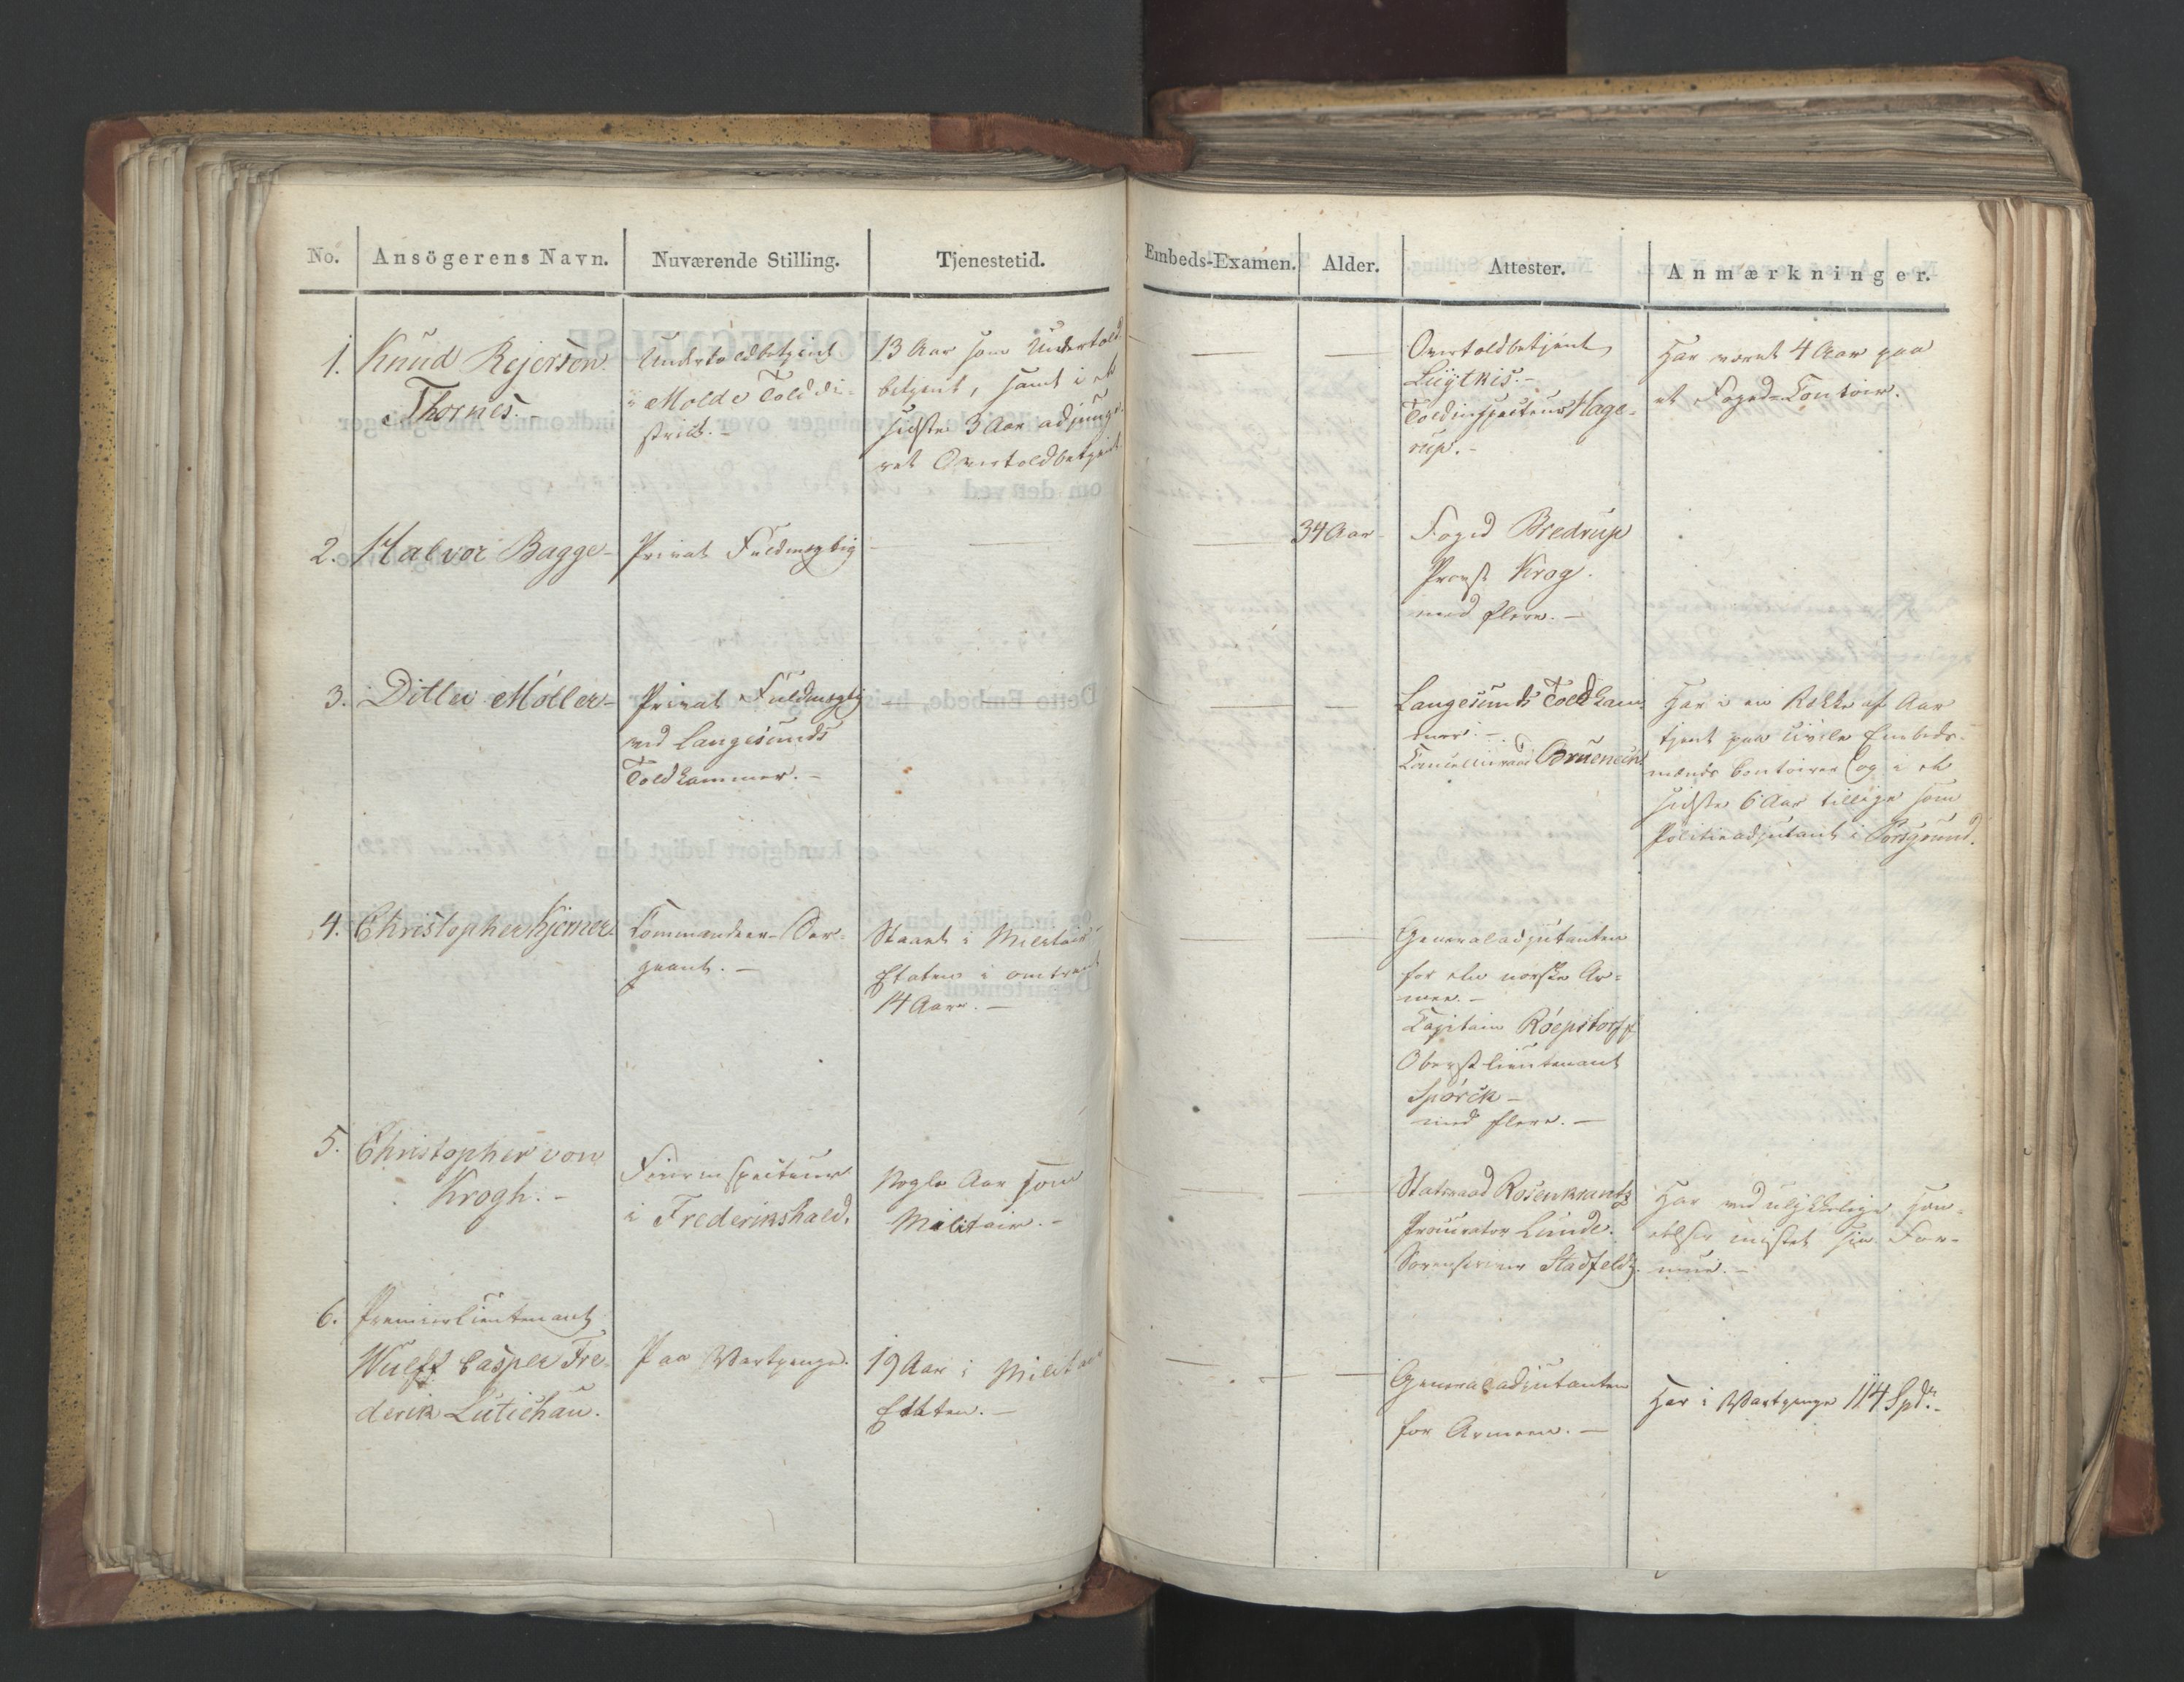 No. Ansögerens Navn. Nuværende Stilling. Tjenestetid. Embeds-Examen. Alder. Attester. Anmærkninger.
1. Knud Rejersen
Thornes.-
Undertoldbetjent
i Molde Tolddi-
strict.-
13 Aar som Undertold-
betjent, samt i de
sidste 3 Aar adjunge-
ret Overtoldbetjent
—
—
Overtoldbetjent
Lüytkis.-
Toldinspecteur Hage-
rup.-
Har været 4 Aar paa
et Foged-Contoir.
2. Halvor Bagge-
Privat Fuldmegtig
—
—
34 Aar
Foged Bredrup
Provst Krog.
med flere.-
3. Ditlev Möller-
Privat Fuldmegtig
ved Langesunds
Toldkammer.-
—
—
—
Langesunds Toldkam-
mer.-
Cancelliraad Bruenech
Har i en Rekke af Aar
tjent paa civile Embeds-
mænds Contoirer og i de
sidste 6 Aar tillige som
Politieadjutant i Porsgrund.
4. Christopher Kjerner
Commandeer-Ser-
geant.-
Staaet i Militair
Etaten i omtrent
14 Aar.-
—
—
Generaladjutanten
for den norske Ar-
mee.-
Capitain Röepstorff
Oberstlieutenant
Spörck-
med flere.-
5. Christopher von
Krogh.-
i Frederikshald.
Nogle Aar som
Militair.-
—
—
Statsraad Rosenkrantz
Procurator Lunde.
Sorenskriver Stadfeldt.
Har ved ulykkelige Hen-
delser mistet sin For-
mue.-
6. Premierlieutenant
Wulff Casper Fre-
derik Lütichau.
Paa Vartpenge.
19 Aar i Militair
Etaten.-
—
—
Generaladjutanten
for Armeen.-
Har i Vartpenge 114 Spd.-